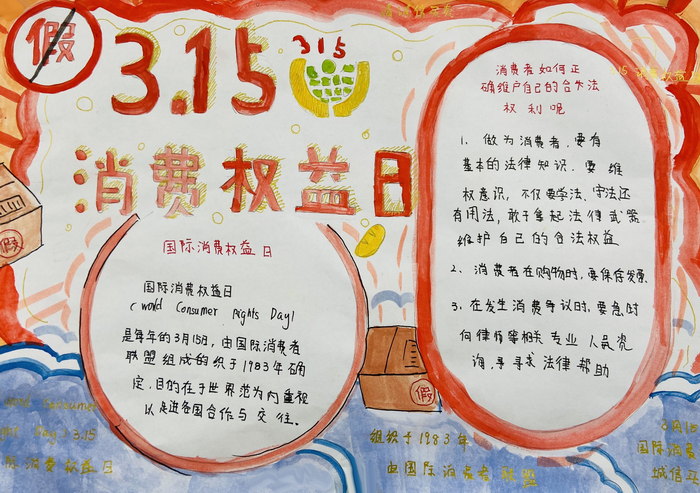 假
3.15
315
消费权益日
国际消费权益日
国际消费权益日
( world Consumer
Day)
是每年的3月15日，由国际消费者
联盟组成的织于1983年确
定，目的在于世界范为内重视
以是进各国合作与交往。
消费者如何正
确维户自己的合大法
权利呢
1、做为消费者，要有
基本的法律知识，要维
权意识，不仅要学法、守法还
有用法，敢于拿起法律武器
维护自己的合法权益
2、消费者在购物时，要保存发票
3、在发生消费争议时，要急时
何律师等相关专业人员咨
询，寻寻求法律帮助
假
假
world Consumer
Day) 3.15
际消费权益日
组织于1983年
由国际消费者联盟
3月15
国际消费